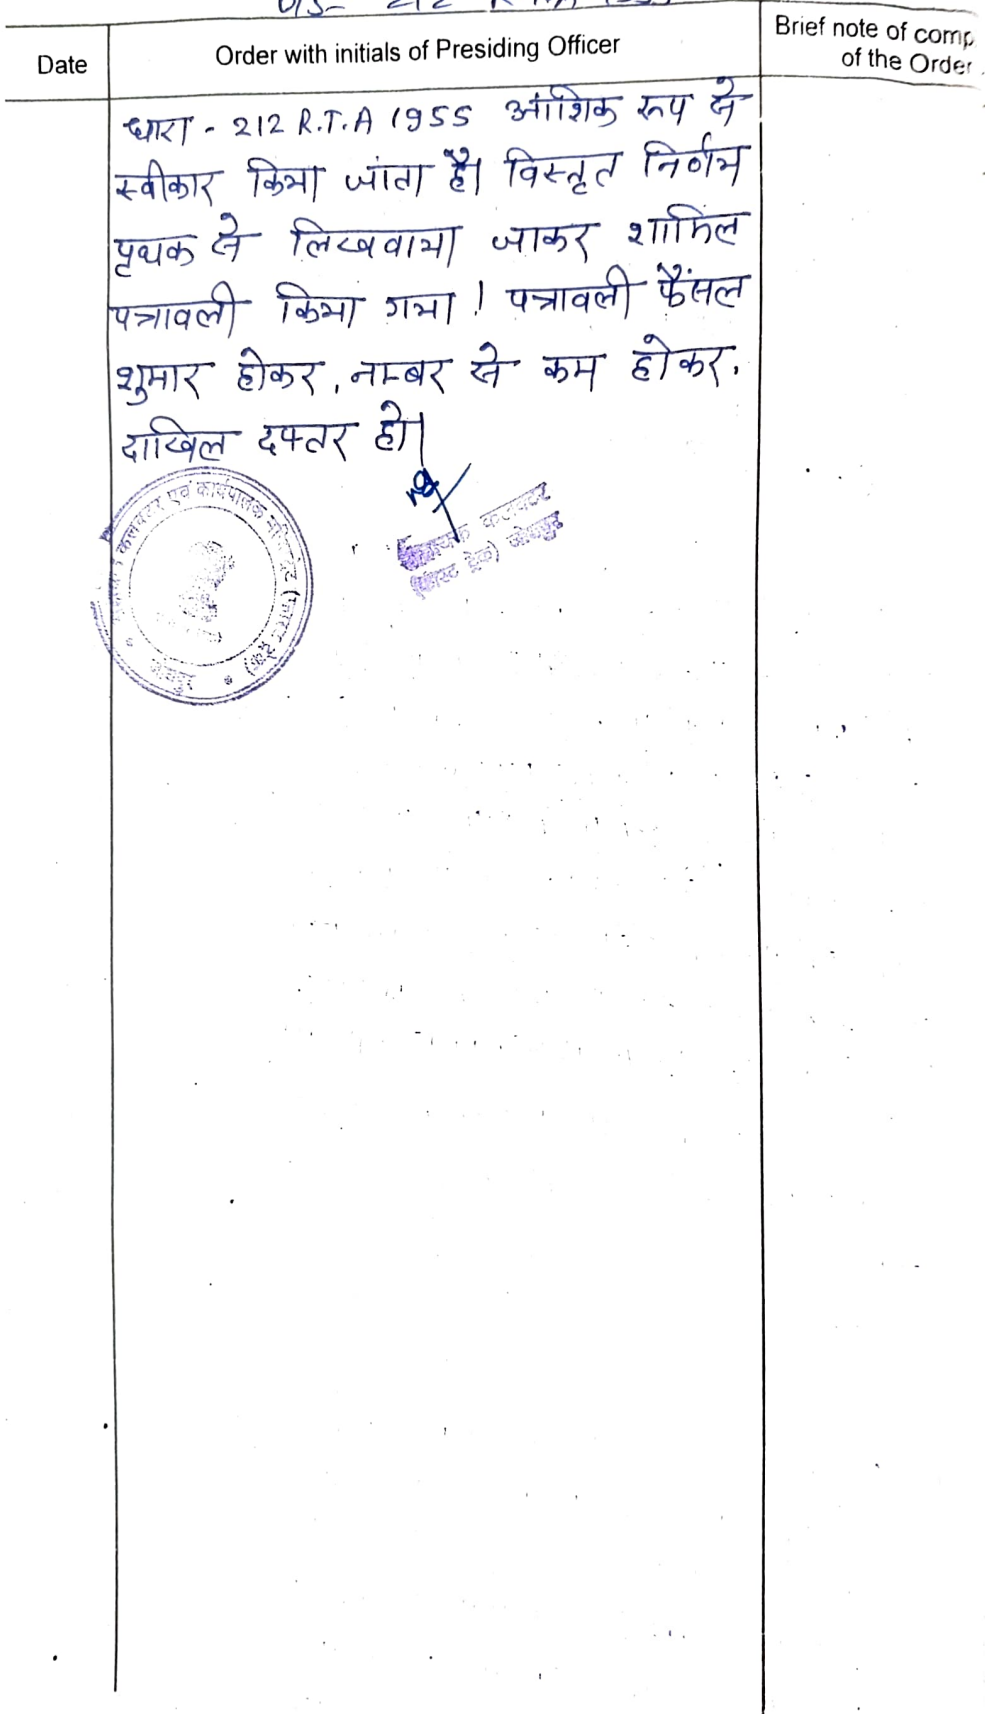 U/S- 212
Date
Order with initials of Presiding Officer
Brief note of comp
of the Order
धारा - 212 R.T.A 1955 आंशिक रूप से
स्वीकार किया जाता है। विस्तृत निर्णय
पृथक से लिखवाया जाकर शामिल
पत्रावली किया गया! पत्रावली फैंसल
शुमार होकर, नम्बर से कम होकर.
दाखिल दफ्तर हो।
कलक्टर एवं कार्यपालक मजिस्ट्रेट (फास्ट ट्रेक)
सहायक कलक्टर
(फास्ट ट्रेक) जोधपुर